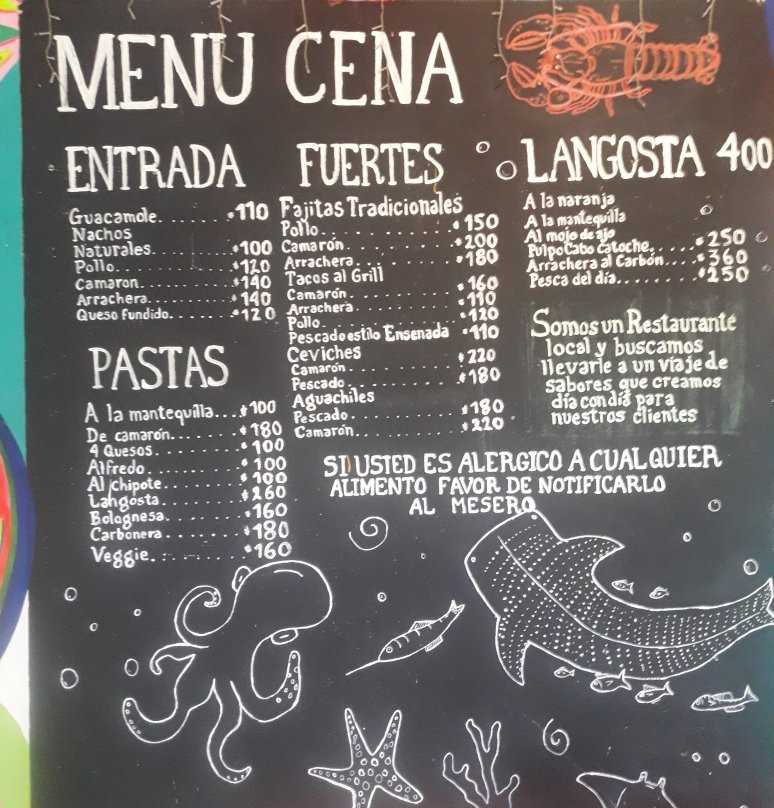 MENU CENA
ENTRADA
Guacamole.......$110
Nachos
Naturales.......$100
Pollo...........$120
Camaron.........$140
Arrachera.......$140
Queso fundido...$120
PASTAS
A la mantequilla...$100
De camarón.......$180
4 Quesos.........$100
Alfredo..........$100
Al chipote.......$100
Langosta.........$260
Bolagnesa........$160
Carbonera........$180
Veggie...........$160
FUERTES
Fajitas Tradicionales
Pollo............$150
Camarón..........$200
Arrachera........$180
Tacos al Grill
Camarón..........$160
Arrachera........$110
Pollo............$120
Pescado estilo Ensenada $110
Ceviches
Camarón..........$220
Pescado..........$180
Aguachiles
Pescado..........$180
Camarón..........$220
LANGOSTA 400
A la naranja
A la mantequilla
Al mojo de ajo
Pulpo Cabo Catoche.....$250
Arrachera al Carbón....$360
Pesca del día.......$250
Somos un Restaurante
local y buscamos
llevarle a un viaje de
sabores que creamos
día con día para
nuestros clientes
SI USTED ES ALERGICO A CUALQUIER
ALIMENTO FAVOR DE NOTIFICARLO
AL MESERO